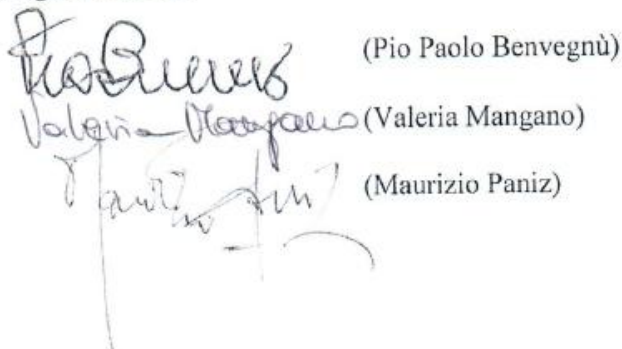 (Pio Paolo Benvegnù)
Valeria Mangano (Valeria Mangano)
(Maurizio Paniz)